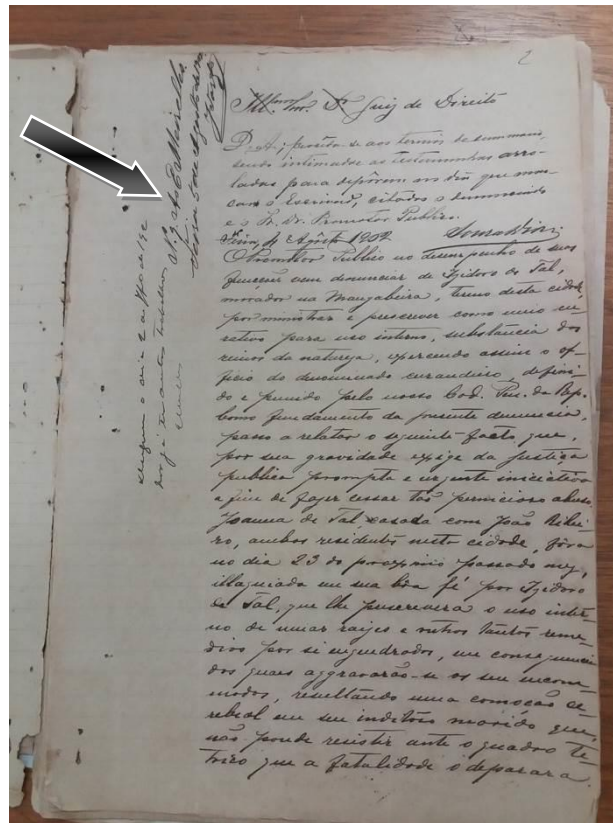 2
Illmo. Snr. Dr. Juiz de Direito
D. A; proceda-se aos termos do summario,
sendo intimadas as testemunhas arro-
ladas para depôrem em dia que mar-
cará o Escrivão, citados o denunciado
e o Dr. Promotor Publico.
4 Agosto 1902
O Promotor Publico no desempenho de suas
funcções vem denunciar de Izidoro de Tal,
morador na Mangabeira, termo desta cidade,
por ministrar e prescrever como meio cu-
rativo para uso interno, substancia dos
reinos da natureza, exercendo assim o of-
ficio do denominado curandeiro, defini-
do e punido pelo nosso Cod. Pen. da Rep.
Como fundamento da presente denuncia,
passo a relatar o seguinte facto, que,
por sua gravidade exige da justiça
publica prompta e urgente iniciativa
a fim de fazer cessar tão pernicioso abuso.
Joanna de Tal, casada com João Ribei-
ro, ambos residentes nesta cidade, fôra
no dia 23 do proximo passado mez,
illaqueada em sua bôa fé por Izidoro
de Tal, que lhe prescrevera o uso inter-
no de umas raizes e outros tantos reme-
dios por si engendrados, em consequencia
dos quaes aggravarão-se os seu incom-
modos, resultando uma comoção ce-
rebral em seu inditôso marido que,
não poude resistir ante o quadro te-
trico que a fatalidade o deparara.